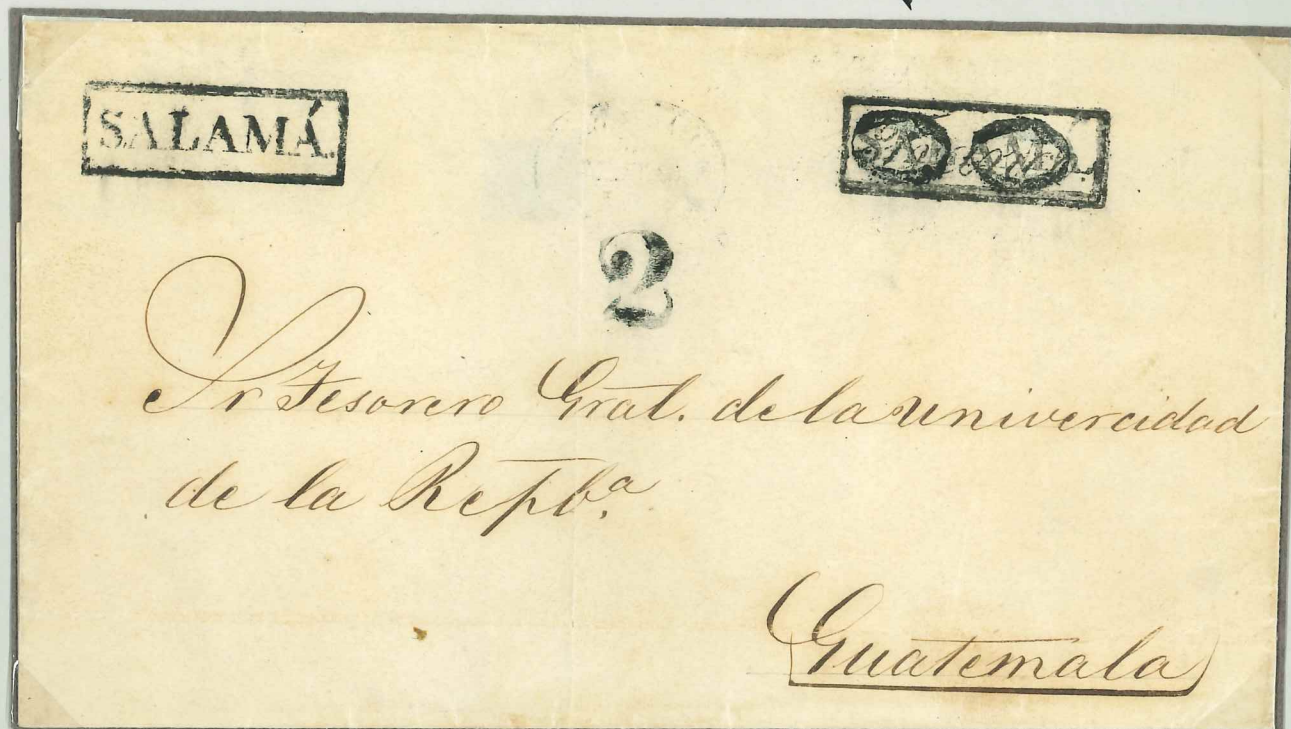 SALAMÁ.
2
Sr Tesorero Gral. de la Univercidad
de la Repbᵃ.
Guatemala